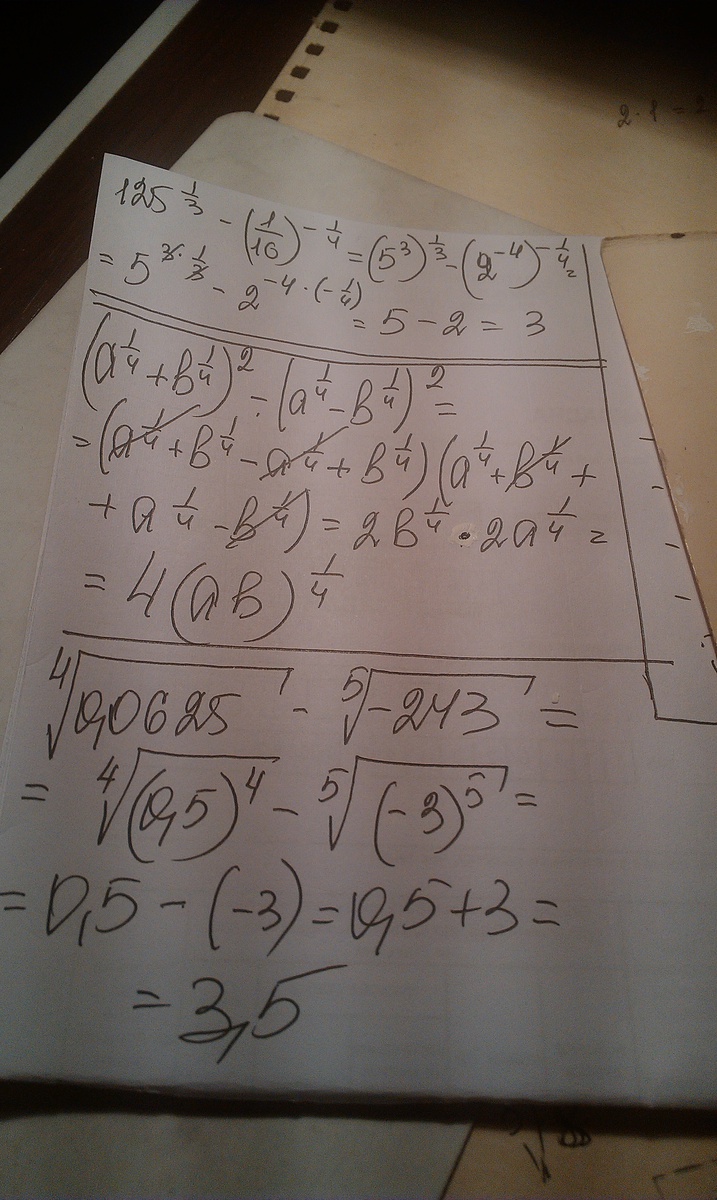 2 · 1 = 2
125^{1/3} - (1/16)^{-1/4} = (5^3)^{1/3} - (2^{-4})^{-1/4} =
= 5^{3·1/3} - 2^{-4·(-1/4)} = 5 - 2 = 3
(a^{1/4} + b^{1/4})^2 - (a^{1/4} - b^{1/4})^2 =
= (a^{1/4} + b^{1/4} - a^{1/4} + b^{1/4}) (a^{1/4} + b^{1/4} +
+ a^{1/4} - b^{1/4}) = 2b^{1/4} · 2a^{1/4} =
= 4(ab)^{1/4}
∜0,0625 - ⁵√-243 =
= ∜(0,5)^4 - ⁵√(-3)^5 =
= 0,5 - (-3) = 0,5 + 3 =
= 3,5